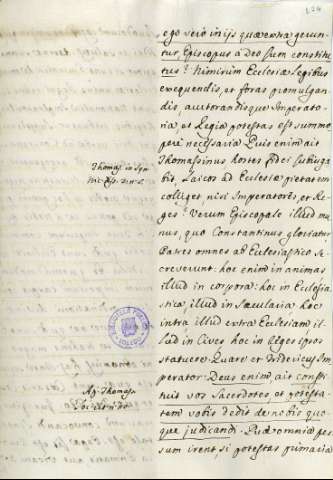 124
ego vero in ijs quæ extra gerun-
tur, Episcopus a Deo sum constitu
tus? Nimirum Ecclesiæ legibus
exequendis, et foras promulgan
dis, auctorandisque Imperato-
ria, et Regia potestas est summo
pere necessaria Quis enim ait
Thomassinus hostes fidei subiuga
bit, Laicos ad Ecclesiæ pietatem
colliget, nisi Imperatores, et Re
ges? Verum Episcopale illud mu
nus, quo Constantinus gloriatur
Patres omnes ab Ecclesiastico se
creverunt: hoc enim in animas
illud in corpora: hoc in Ecclesias
tica, illud in sæcularia hoc
intra, illud extra Ecclesiam il
lud in Cives hoc in Reges ipsos
statuere Quare et Videricus Im
perator: Deus enim, ait consti
tuit vos Sacerdotes et potesta-
tem vobis dedit de nobis quo
que judicandi. Quæ omnia pes
sum irent, si potestas primaria
Thomas. in Syn
Ap. Thomas.
BIBLIOTECA PUBLICA
TOLEDO